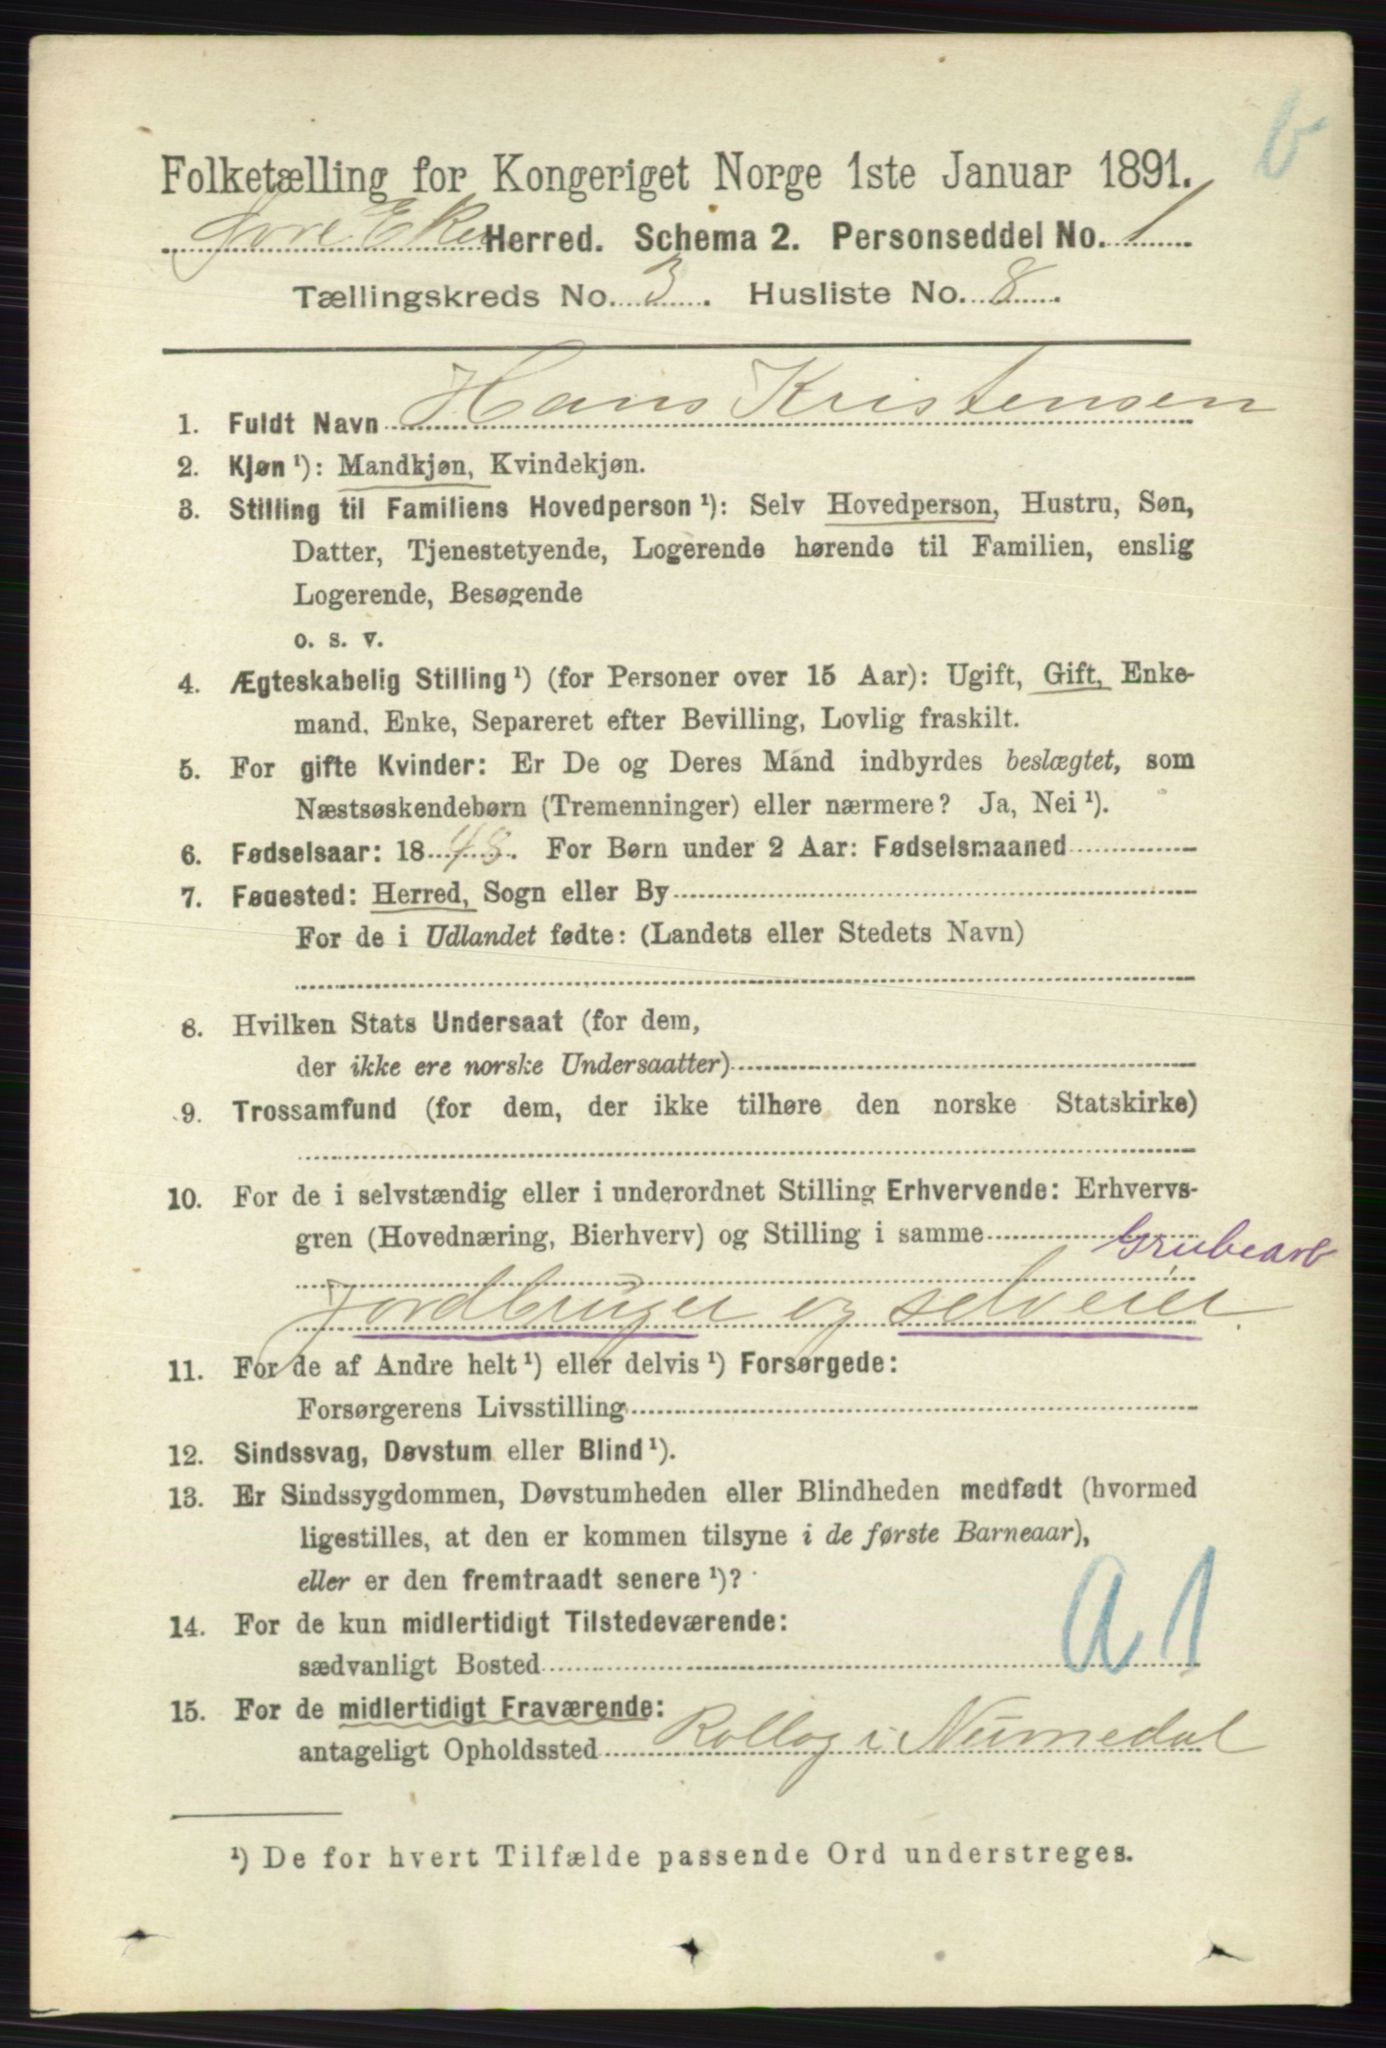 b
Folketælling for Kongeriget Norge 1ste Januar 1891.
Øvre Eker Herred. Schema 2. Personseddel No. 1
Tællingskreds No. 3. Husliste No. 8.
1. Fuldt Navn Hans Kristensen
2. Kjøn ¹): Mandkjøn, Kvindekjøn.
3. Stilling til Familiens Hovedperson ¹): Selv Hovedperson, Hustru, Søn,
Datter, Tjenestetyende, Logerende hørende til Familien, enslig
Logerende, Besøgende
o. s. v.
4. Ægteskabelig Stilling ¹) (for Personer over 15 Aar): Ugift, Gift, Enke-
mand, Enke, Separeret efter Bevilling, Lovlig fraskilt.
5. For gifte Kvinder: Er De og Deres Mand indbyrdes beslægtet, som
Næstsøskendebørn (Tremenninger) eller nærmere? Ja, Nei ¹).
6. Fødselsaar: 1848. For Børn under 2 Aar: Fødselsmaaned
7. Fødested: Herred, Sogn eller By
For de i Udlandet fødte: (Landets eller Stedets Navn)
8. Hvilken Stats Undersaat (for dem,
der ikke ere norske Undersaatter)
9. Trossamfund (for dem, der ikke tilhøre den norske Statskirke)
10. For de i selvstændig eller i underordnet Stilling Erhvervende: Erhvervs-
gren (Hovednæring, Bierhverv) og Stilling i samme Grubearb
Jordbruger og selveier.
11. For de af Andre helt ¹) eller delvis ¹) Forsørgede:
Forsørgerens Livsstilling
12. Sindssvag, Døvstum eller Blind ¹).
13. Er Sindssygdommen, Døvstumheden eller Blindheden medfødt (hvormed
ligestilles, at den er kommen tilsyne i de første Barneaar),
eller er den fremtraadt senere ¹)?
14. For de kun midlertidigt Tilstedeværende:
sædvanligt Bosted a 1
15. For de midlertidigt Fraværende:
antageligt Opholdssted Rollog i Numedal
¹) De for hvert Tilfælde passende Ord understreges.